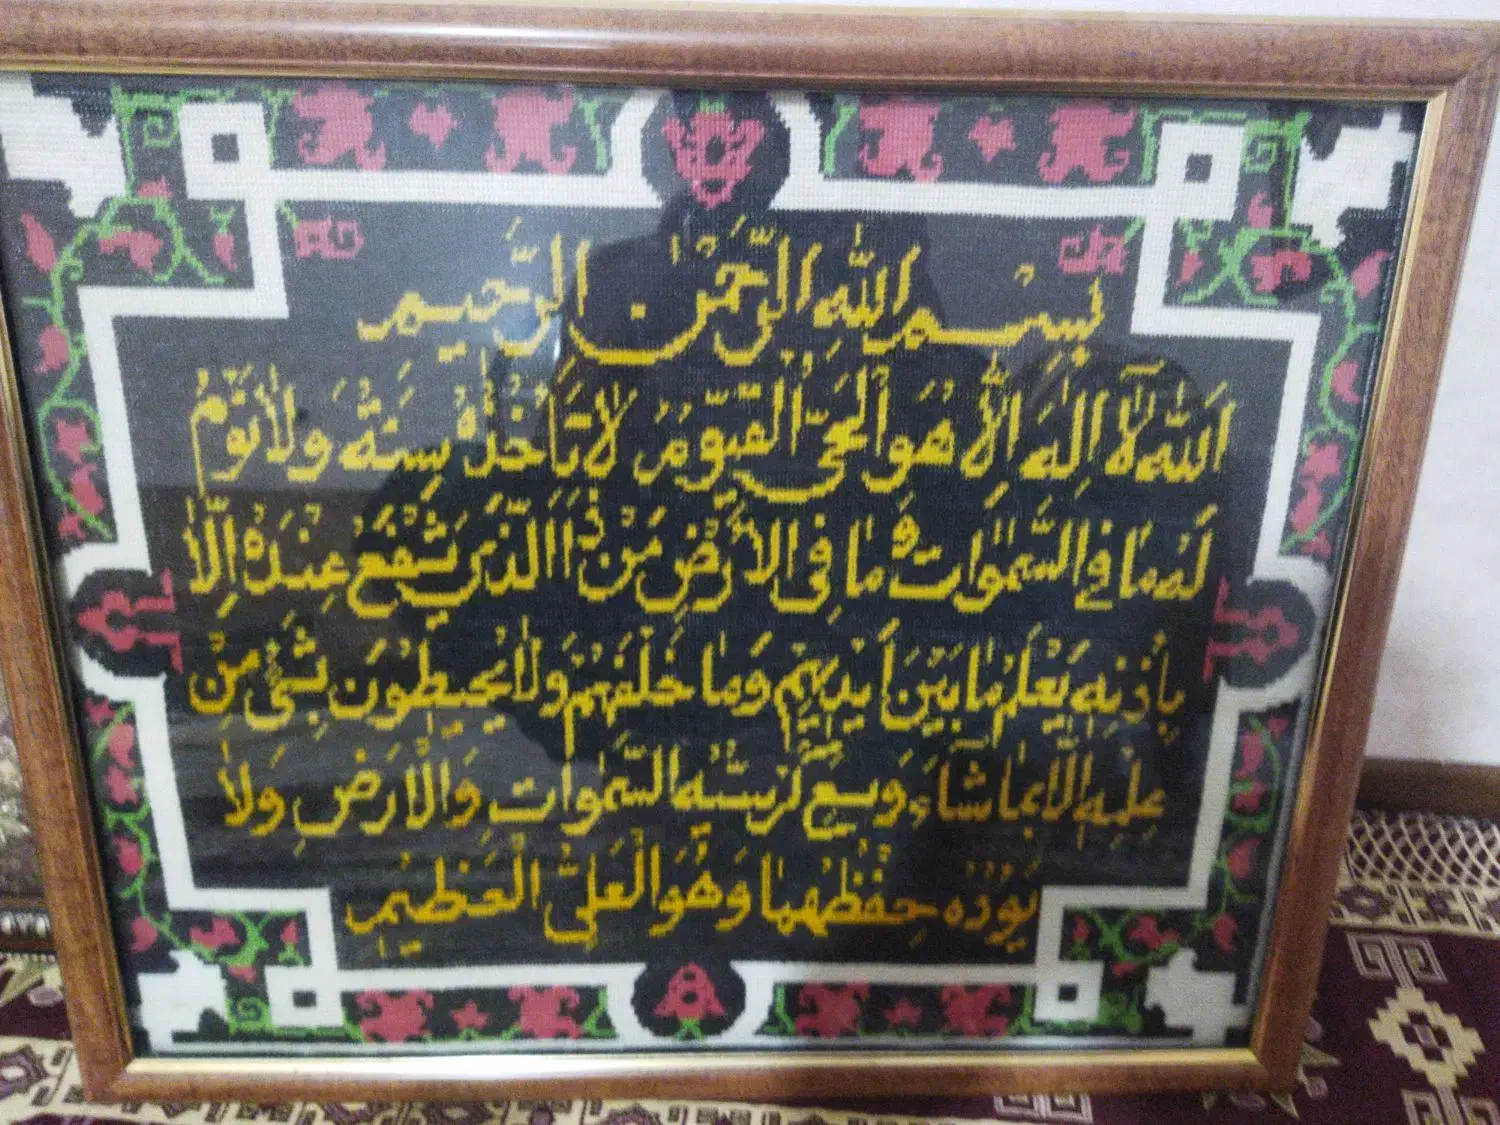 بِسْمِ اللّٰهِ الرَّحْمٰنِ الرَّحِيمِ
اَللّٰهُ لَآ اِلٰهَ اِلَّا هُوَ الْحَىُّ الْقَيُّومُ لَا تَأْخُذُهُ سِنَةٌ وَلَا نَوْمٌ
لَهُ مَا فِي السَّمٰوَاتِ وَمَا فِى الْاَرْضِ مَنْ ذَا الَّذِي يَشْفَعُ عِنْدَهُ اِلَّا
بِاِذْنِهِ يَعْلَمُ مَا بَيْنَ اَيْدِيهِمْ وَمَا خَلْفَهُمْ وَلَا يُحِيطُونَ بِشَىْءٍ مِنْ
عِلْمِهِ اِلَّا بِمَا شَآءَ وَسِعَ كُرْسِيُّهُ السَّمٰوَاتِ وَالْاَرْضَ وَلَا
يَؤُدُهُ حِفْظُهُمَا وَهُوَ الْعَلِىُّ الْعَظِيمُ